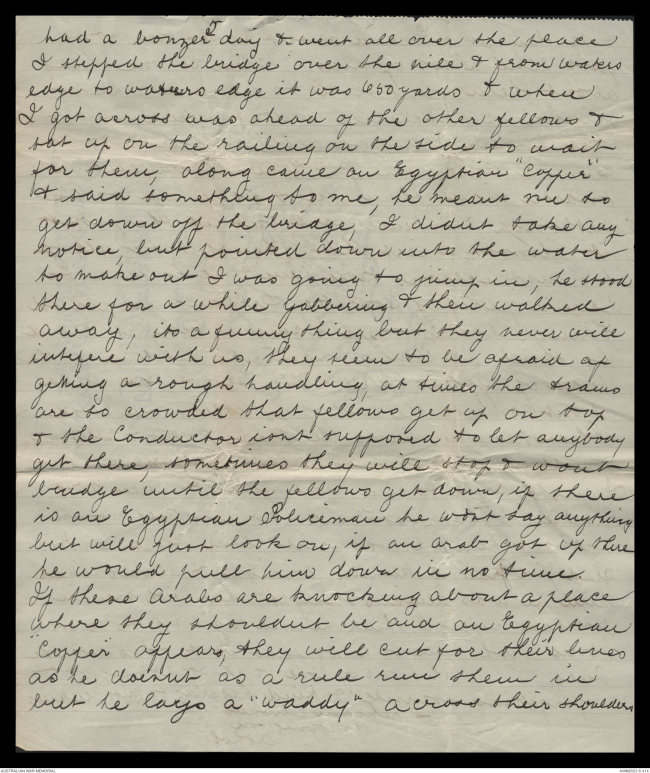 had a bonzer day & went all over the place
I stepped the bridge over the nile & from waters
edge to waters edge it was 650 yards & when
I got across was ahead of the other fellows &
sat up on the railing on the side to wait
for them, along came an Egyptian "Copper"
& said something to me, he meant me to
get down off the bridge, I didnt take any
notice, but pointed down into the water
to make out I was going to jump in, he stood
there for a while gabbering & then walked
away, its a funny thing but they never will
intefere with us, they seem to be afraid of
getting a rough handling, at times the trams
are so crowded that fellows get up on top
& the Conductor isnt supposed to let anybody
get there, sometimes they will stop & wont
budge until the fellows get down, if there
is an Egyptian Policeman he wont say anything
but will just look on, if an arab got up there
he would pull him down in no time.
If these Arabs are knocking about a place
where they shouldnt be and an Egyptian
"Copper" appears, they will cut for their lives
as he doesnt as a rule run them in
but he lays a "waddy" across their shoulders
AUSTRALIAN WAR MEMORIAL